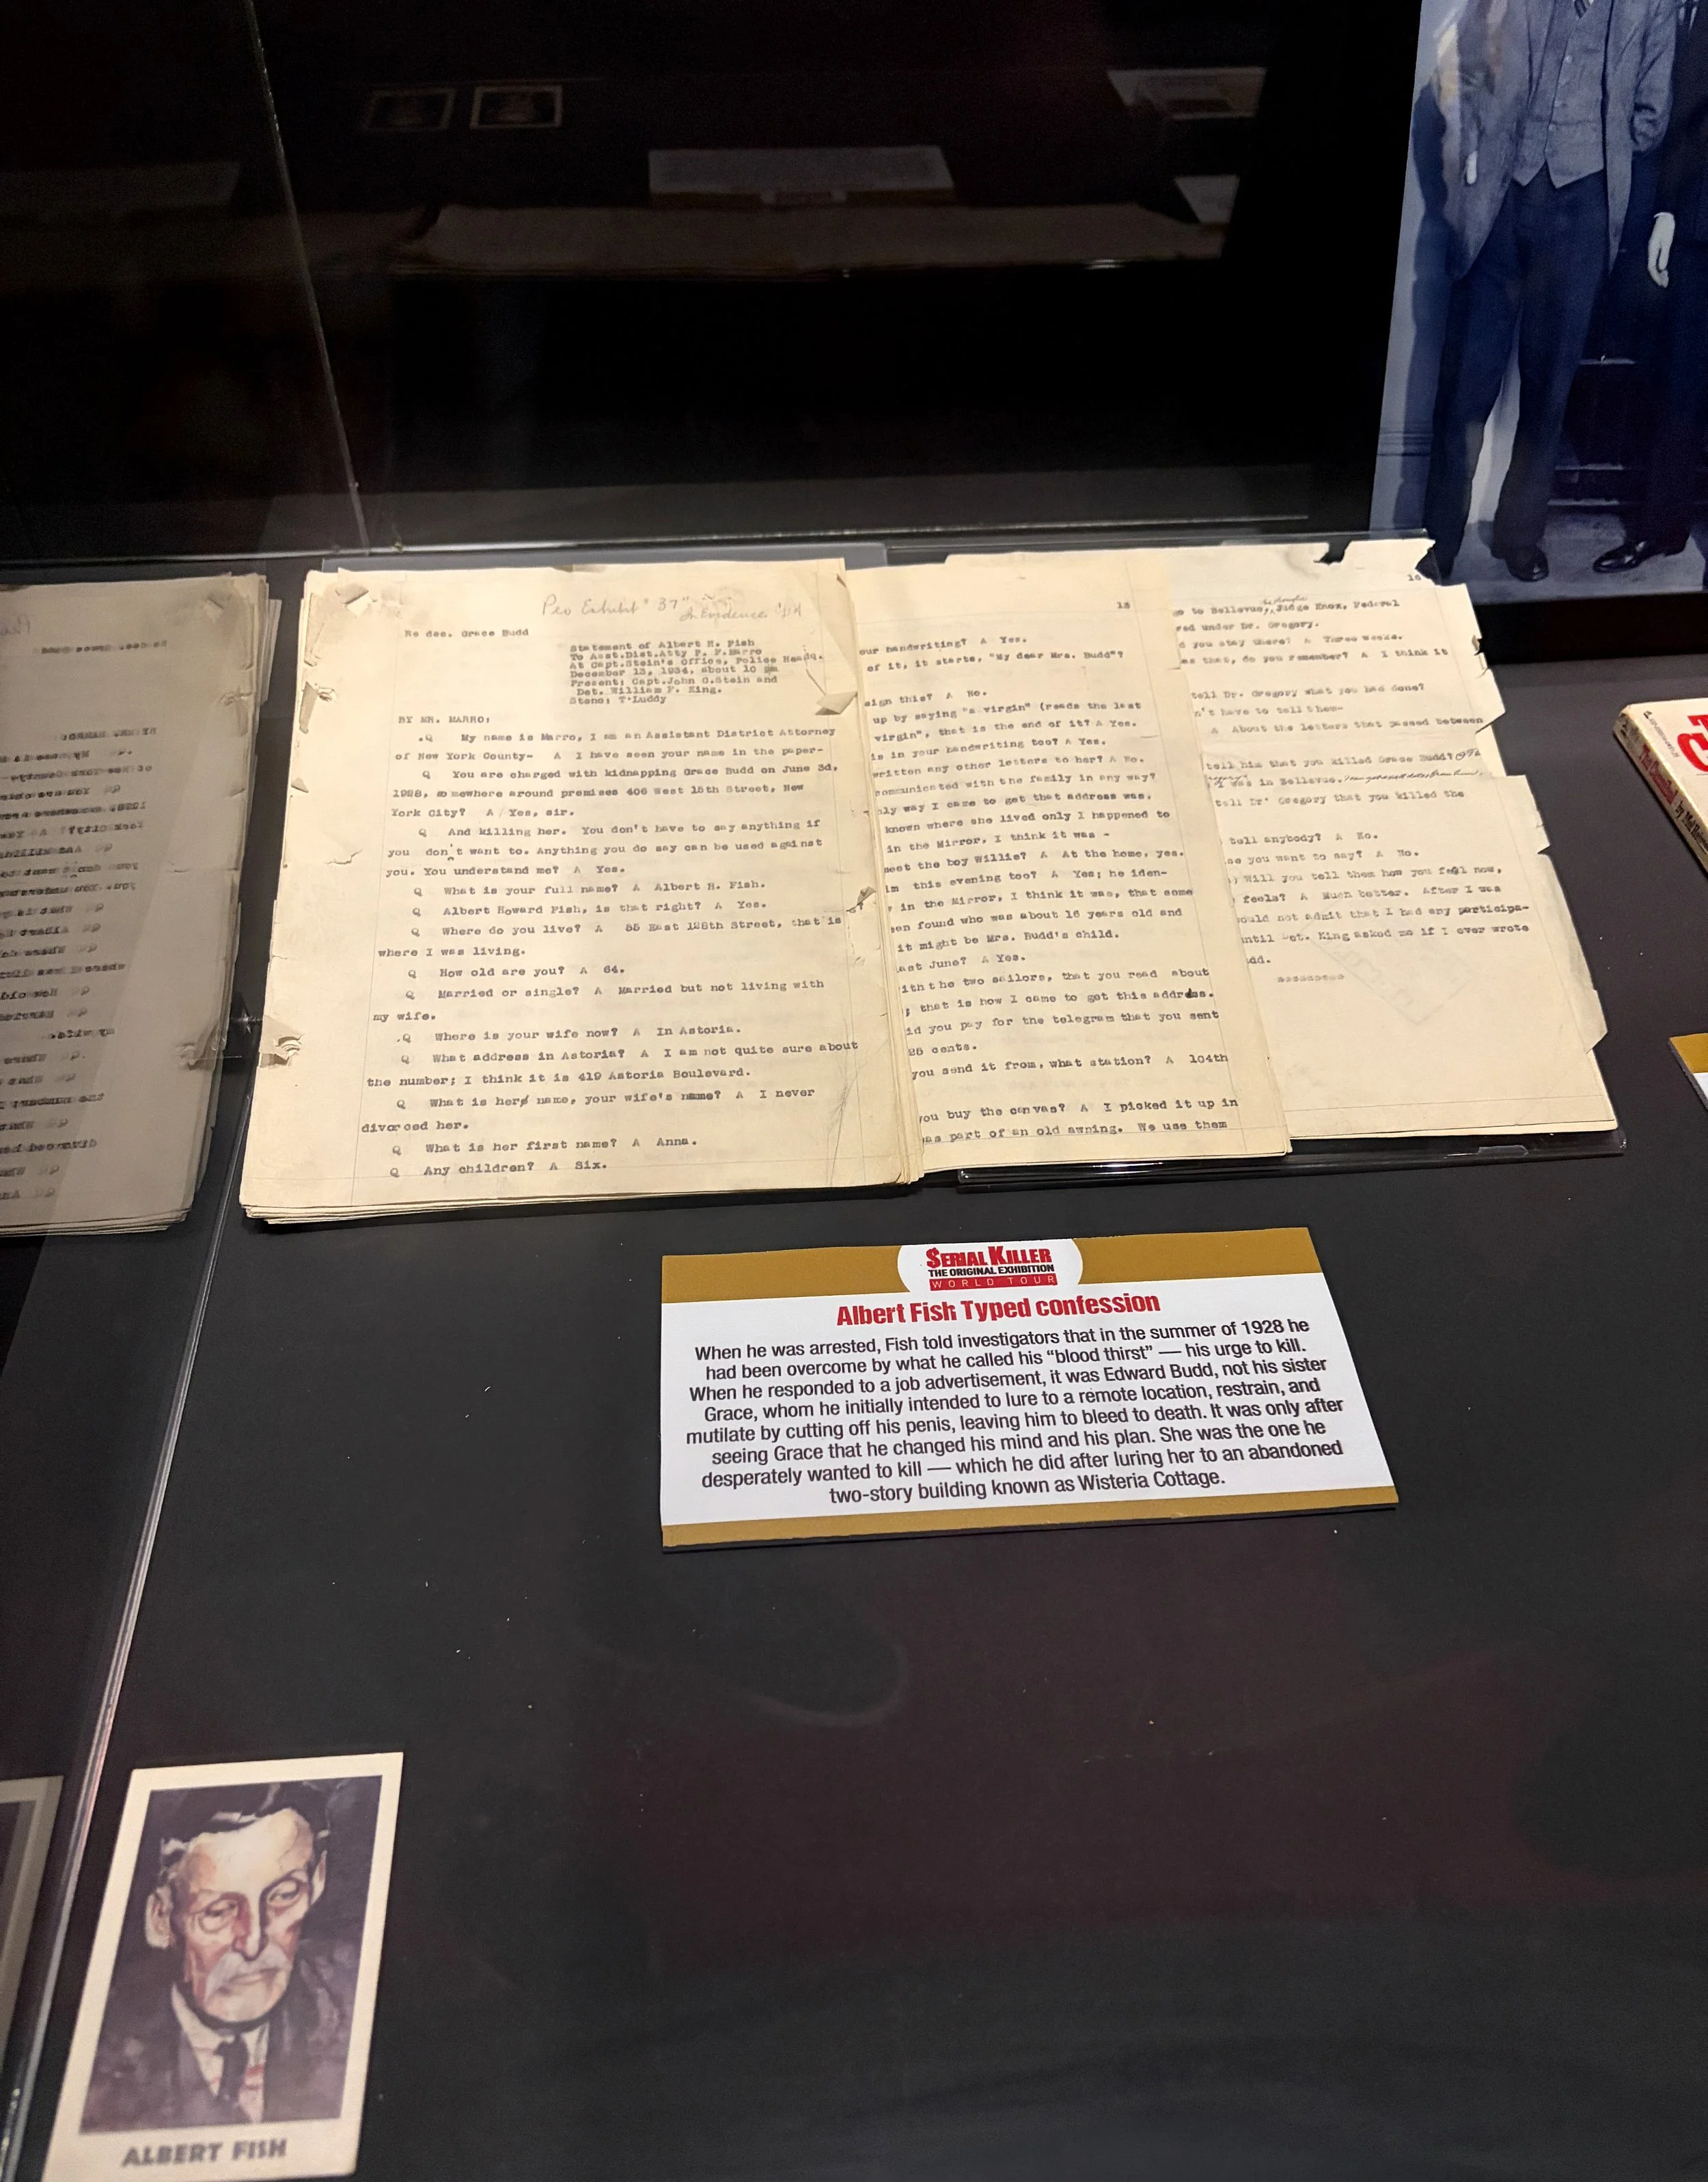 Peo Exhibit "37"
In Evidence
Re dec. Grace Budd
Statement of Albert H. Fish
To Asst.Dist.Atty P. F.Marro
At Capt.Stein's Office, Police Headq.
December 13, 1934, about 10 pm
Present; Capt.John G.Stein and
Det. William F. King.
Steno; T.Luddy
BY MR. MARRO:
.Q My name is Marro, I am an Assistant District Attorney
of New York County- A I have seen your name in the paper-
Q You are charged with kidnapping Grace Budd on June 3d,
1928, somewhere around premises 406 West 15th Street, New
York City? A Yes, sir.
Q And killing her. You don't have to say anything if
you don't want to. Anything you do say can be used against
you. You understand me? A Yes.
Q What is your full name? A Albert H. Fish.
Q Albert Howard Fish, is that right? A Yes.
Q Where do you live? A 55 East 128th Street, that is
where I was living.
Q How old are you? A 64.
Q Married or single? A Married but not living with
my wife.
.Q Where is your wife now? A In Astoria.
Q What address in Astoria? A I am not quite sure about
the number; I think it is 419 Astoria Boulevard.
Q What is her name, your wife's name? A I never
divorced her.
Q What is her first name? A Anna.
Q Any children? A Six.
our handwriting? A Yes.
of it, it starts, "My dear Mrs. Budd"?
sign this? A No.
up by saying "a virgin" (reads the last
virgin", that is the end of it? A Yes.
is in your handwriting too? A Yes.
written any other letters to her? A No.
communicated with the family in any way?
nly way I came to get that address was.
known where she lived only I happened to
in the Mirror, I think it was -
meet the boy Willie? A At the home, yes.
im this evening too? A Yes; he iden-
in the Mirror, I think it was, that some
en found who was about 16 years old and
it might be Mrs. Budd's child.
ast June? A Yes.
ith the two sailors, that you read about
; that is how I came to get this address.
id you pay for the telegram that you sent
25 cents.
you send it from, what station? A 104th
you buy the canvas? A I picked it up in
as part of an old awning. We use them
16
go to Bellevue, Judge Knox, Federal
red under Dr. Gregory.
d you stay there? A Three weeks.
as that, do you remember? A I think it
tell Dr. Gregory what you had done?
n't have to tell them-
A About the letters that passed between
tell him that you killed Grace Budd?
I was in Bellevue.
tell Dr. Gregory that you killed the
tell anybody? A No.
se you want to say? A No.
) Will you tell them how you feel now,
feels? A Much better. After I was
ould not admit that I had any participa-
until Det. King asked me if I ever wrote
dd.
SERIAL KILLER
THE ORIGINAL EXHIBITION
WORLD TOUR
Albert Fish Typed confession
When he was arrested, Fish told investigators that in the summer of 1928 he
had been overcome by what he called his “blood thirst” — his urge to kill.
When he responded to a job advertisement, it was Edward Budd, not his sister
Grace, whom he initially intended to lure to a remote location, restrain, and
mutilate by cutting off his penis, leaving him to bleed to death. It was only after
seeing Grace that he changed his mind and his plan. She was the one he
desperately wanted to kill — which he did after luring her to an abandoned
two-story building known as Wisteria Cottage.
ALBERT FISH